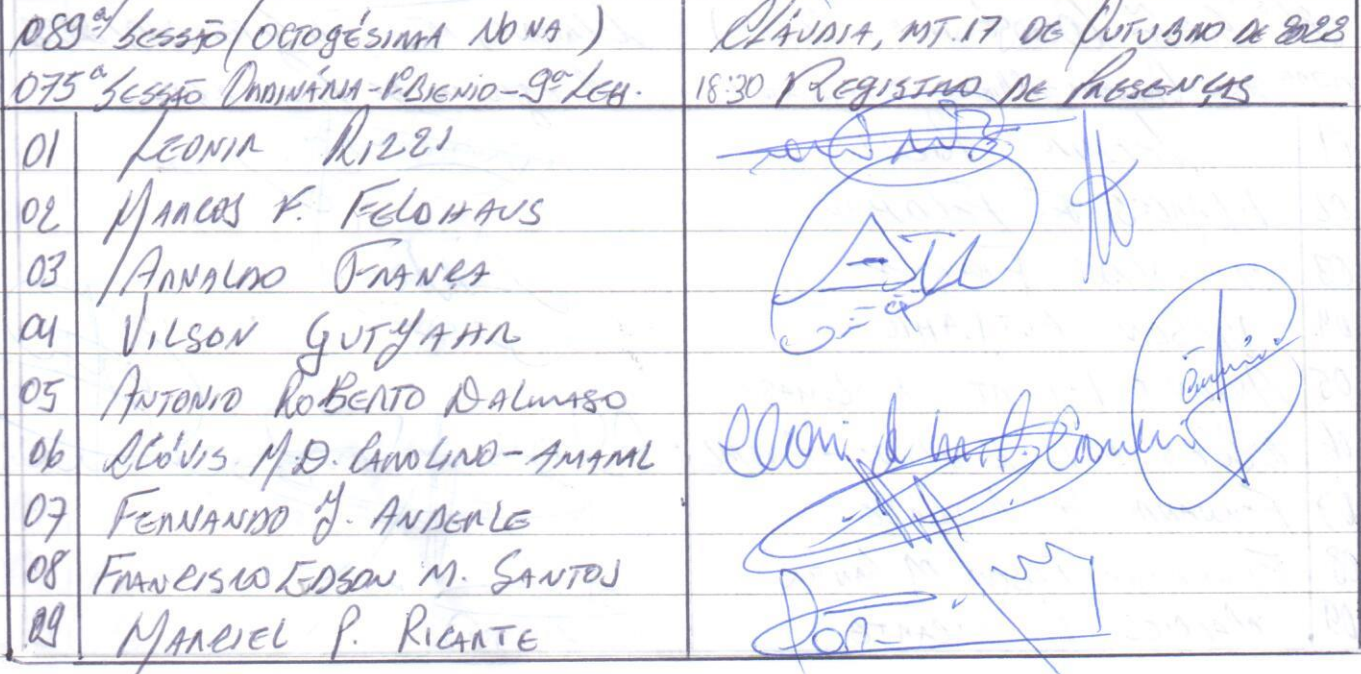 089ª Sessão (Octogésima Nona)
Cláudia, MT. 17 de Outubro de 2023
075ª Sessão Ordinária - 1º Biênio - 9ª Leg.
18:30 Registro de Presenças
01 Leonir Rizzi
02 Marcos F. Feldhaus
03 Arnaldo França
04 Vilson Gutyahr
05 Antonio Roberto Dalmaso
06 Clóvis M.D. Carolino - Amaral
07 Fernando J. Anderle
08 Francisco Edson M. Santos
09 Marciel P. Ricarte